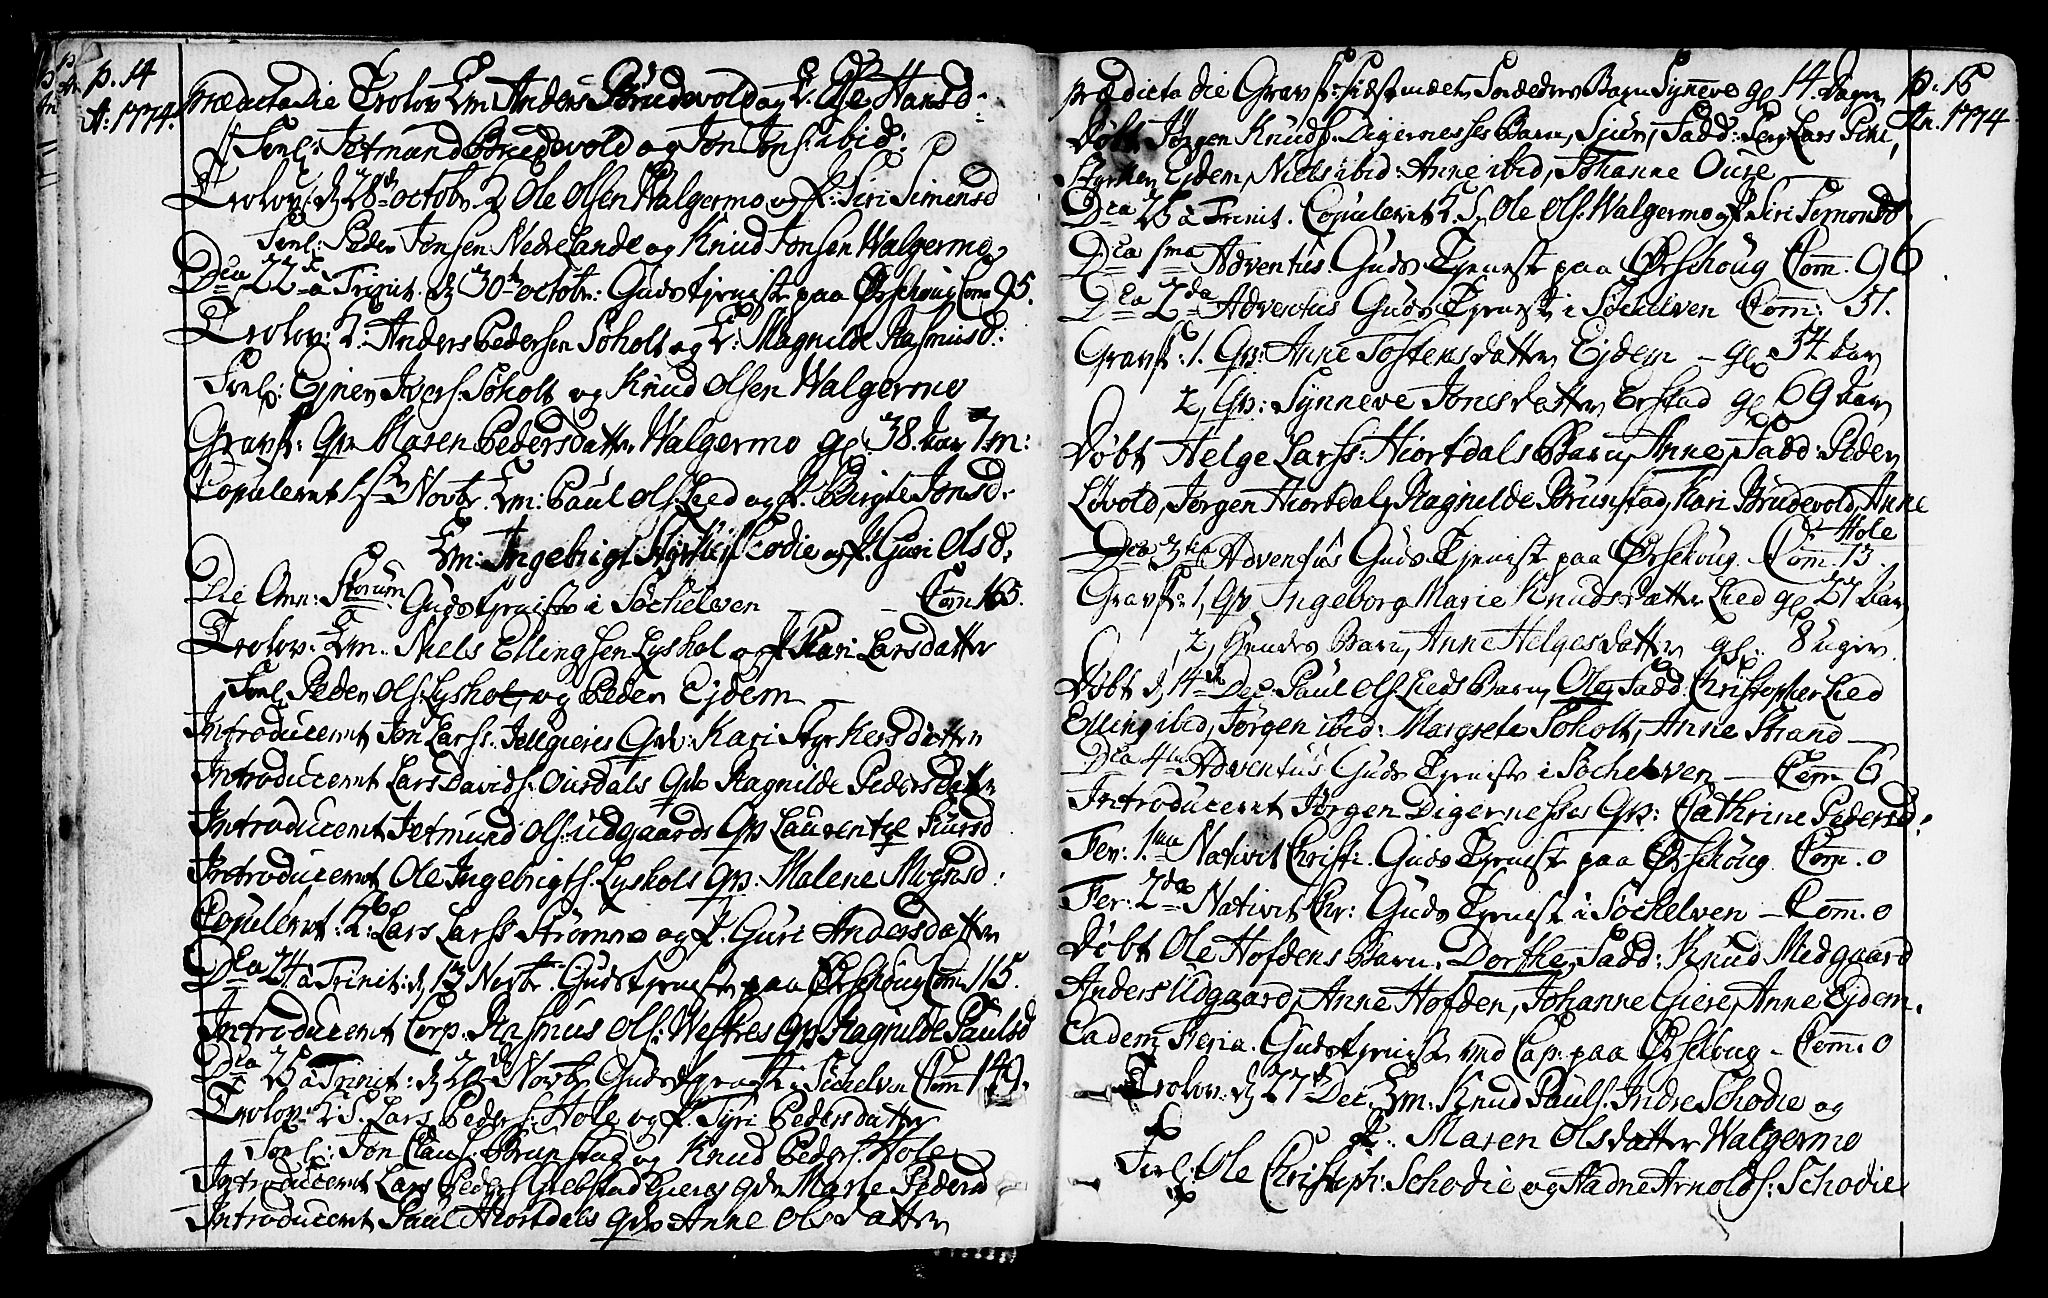 p. 14
A: 1774.
Prædicta die Trolov. Em Anders Brudevold og P. Else Hansd:
Forl: Jetmund Brudevold og Jon Jons: ibid:
Trolov: d 28de octobr. Ole Olsen Walgermo og P: Siri Simensd
Forl: Peder Jonsen Nedrelande og Knud Jonsen Walgermo
Dca 22 a Trinit. d 30te octobr: Guds tjeniste paa Ørschoug Com 95.
Trolov: Anders Pedersen Søholt og P: Magnilde Rasmusd:
Forl: Ejner Ivers: Søholt og Knud Olsen Walgermo
Gravf: Qv Maren Pedersdatter Walgermo gl. 38. aar 7 m:
Copuleret Novbr. Em: Paul Ols: Lied og P. Birgte Jonsd:
Em: Ingebrigt Scodie og P. Guri Olsd:
Die Omn: Storum Guds tjeniste i Søchelven Com 165.
Trolov: Em: Niels Ellingsen Lyshol og P Kari Larsdatter
Forl. Peder Ols: Lyshol, og Peder Ejdem
Introduceret Jon Larss: Jellgieres Qv: Kari Styrkersdatter
Introduceret Lars Davids: Ousdals Qv Ragnilde Pedersdatter
Introduceret Jetmund Ols: udgaards Qv Laurentze Siursd
Introduceret Ole Ingebrigts. Lyshols Qv. Malene Mognsd:
Copuleret: Lars Larss Strømme og P. Guri Andersdatter
Dca 24 a Trinit: d 13 Novbr. Guds tjeniste paa Ørschoug Com 115.
Introduceret Corp. Rasmus Ols: Westres Qv Ragnilde Paulsd
Dca 25 a Trinit: d 20de Novbr Guds tjeniste i Søchelven Com 149.
Trolov: Lars Peders: Hole og P. Syri Pedersdatter
Forl: Jon Claus: Brunstad og Knud Peders: Hole
Introduceret Lars Peders Gieres qv Marie Pedersd
Introduceret Paul Hiortdals qv Anne Olsdatter
p. 15
An. 1774
prædicta die Gravf: sidst Barn Synneve gl 14. dage
Døbt Jørgen Knuds. Digernesses Barn, Siur, Fadd: Lars
Styrker Ejdem, Niels ibid: Anne ibid, Johanne Ouse
Dca 25 a Trinit. Copuleret Ole Ols: Walgermo og P Siri Semonsd
Dca 1ma Adventus Guds Tjeniste paa Ørschoug Com. 96
Dca 2da Adventus Guds Tjeniste i Søchelven Com: 51.
Gravf: 1. Qv: Anne Tostensdatter Ejdem – gl 54 aar
2, Qv: Synneve Jonsdatter Erstad gl 69 aar
Døbt Helge Larss: Hiortdals Barn, Anne, Fadd: Peder
Løvold, Jørgen Hiortdal, Ragnilde Brunstad, Kari Brudevold, Anne
Hole
Dca 3tia Adventus Guds Tjeniste paa Ørschoug. Com. 13.
Gravf: 1, Qv Ingeborg Marie Knudsdatter Lied gl 27 aar
2, Hendes Barn, Anne Helgesdatter gl: 8 uger
Døbt d 14de Dec. Paul Ols Lieds Barn, Ole, Fadd: Christopher Lied
Elling ibid, Jørgen ibid: Margrete Søholt, Anne Strand
Dca 4ta Adventus Guds Tjeniste i Søchelven – Com 6
Introduceret Jørgen Digernesses Qv: Cathrine Pedersd:
Fer: 1.ma Nativit Christi. Guds Tjeniste paa Ørschoug. Com. 0
Fer: 2da Nativit Chr: Guds Tjeniste i Søchelven – Com. 0
Døbt Ole Hofdens Barn, Dorthe, Fadd: Knud Midgaard
Anders Udgaard, Anne Hofden, Johanne Giere, Anne Ejdem.
Eadem Feria. Guds tjeniste ved Cap: paa Ørschoug – Com: 0
Trolov: d 27de Dec. Em: Knud Pauls. Indre Schodie og
P: Maren Olsdatter Walgermo
Forl: Ole Christoph: Schodie og Aadne Arnolds: Schodie